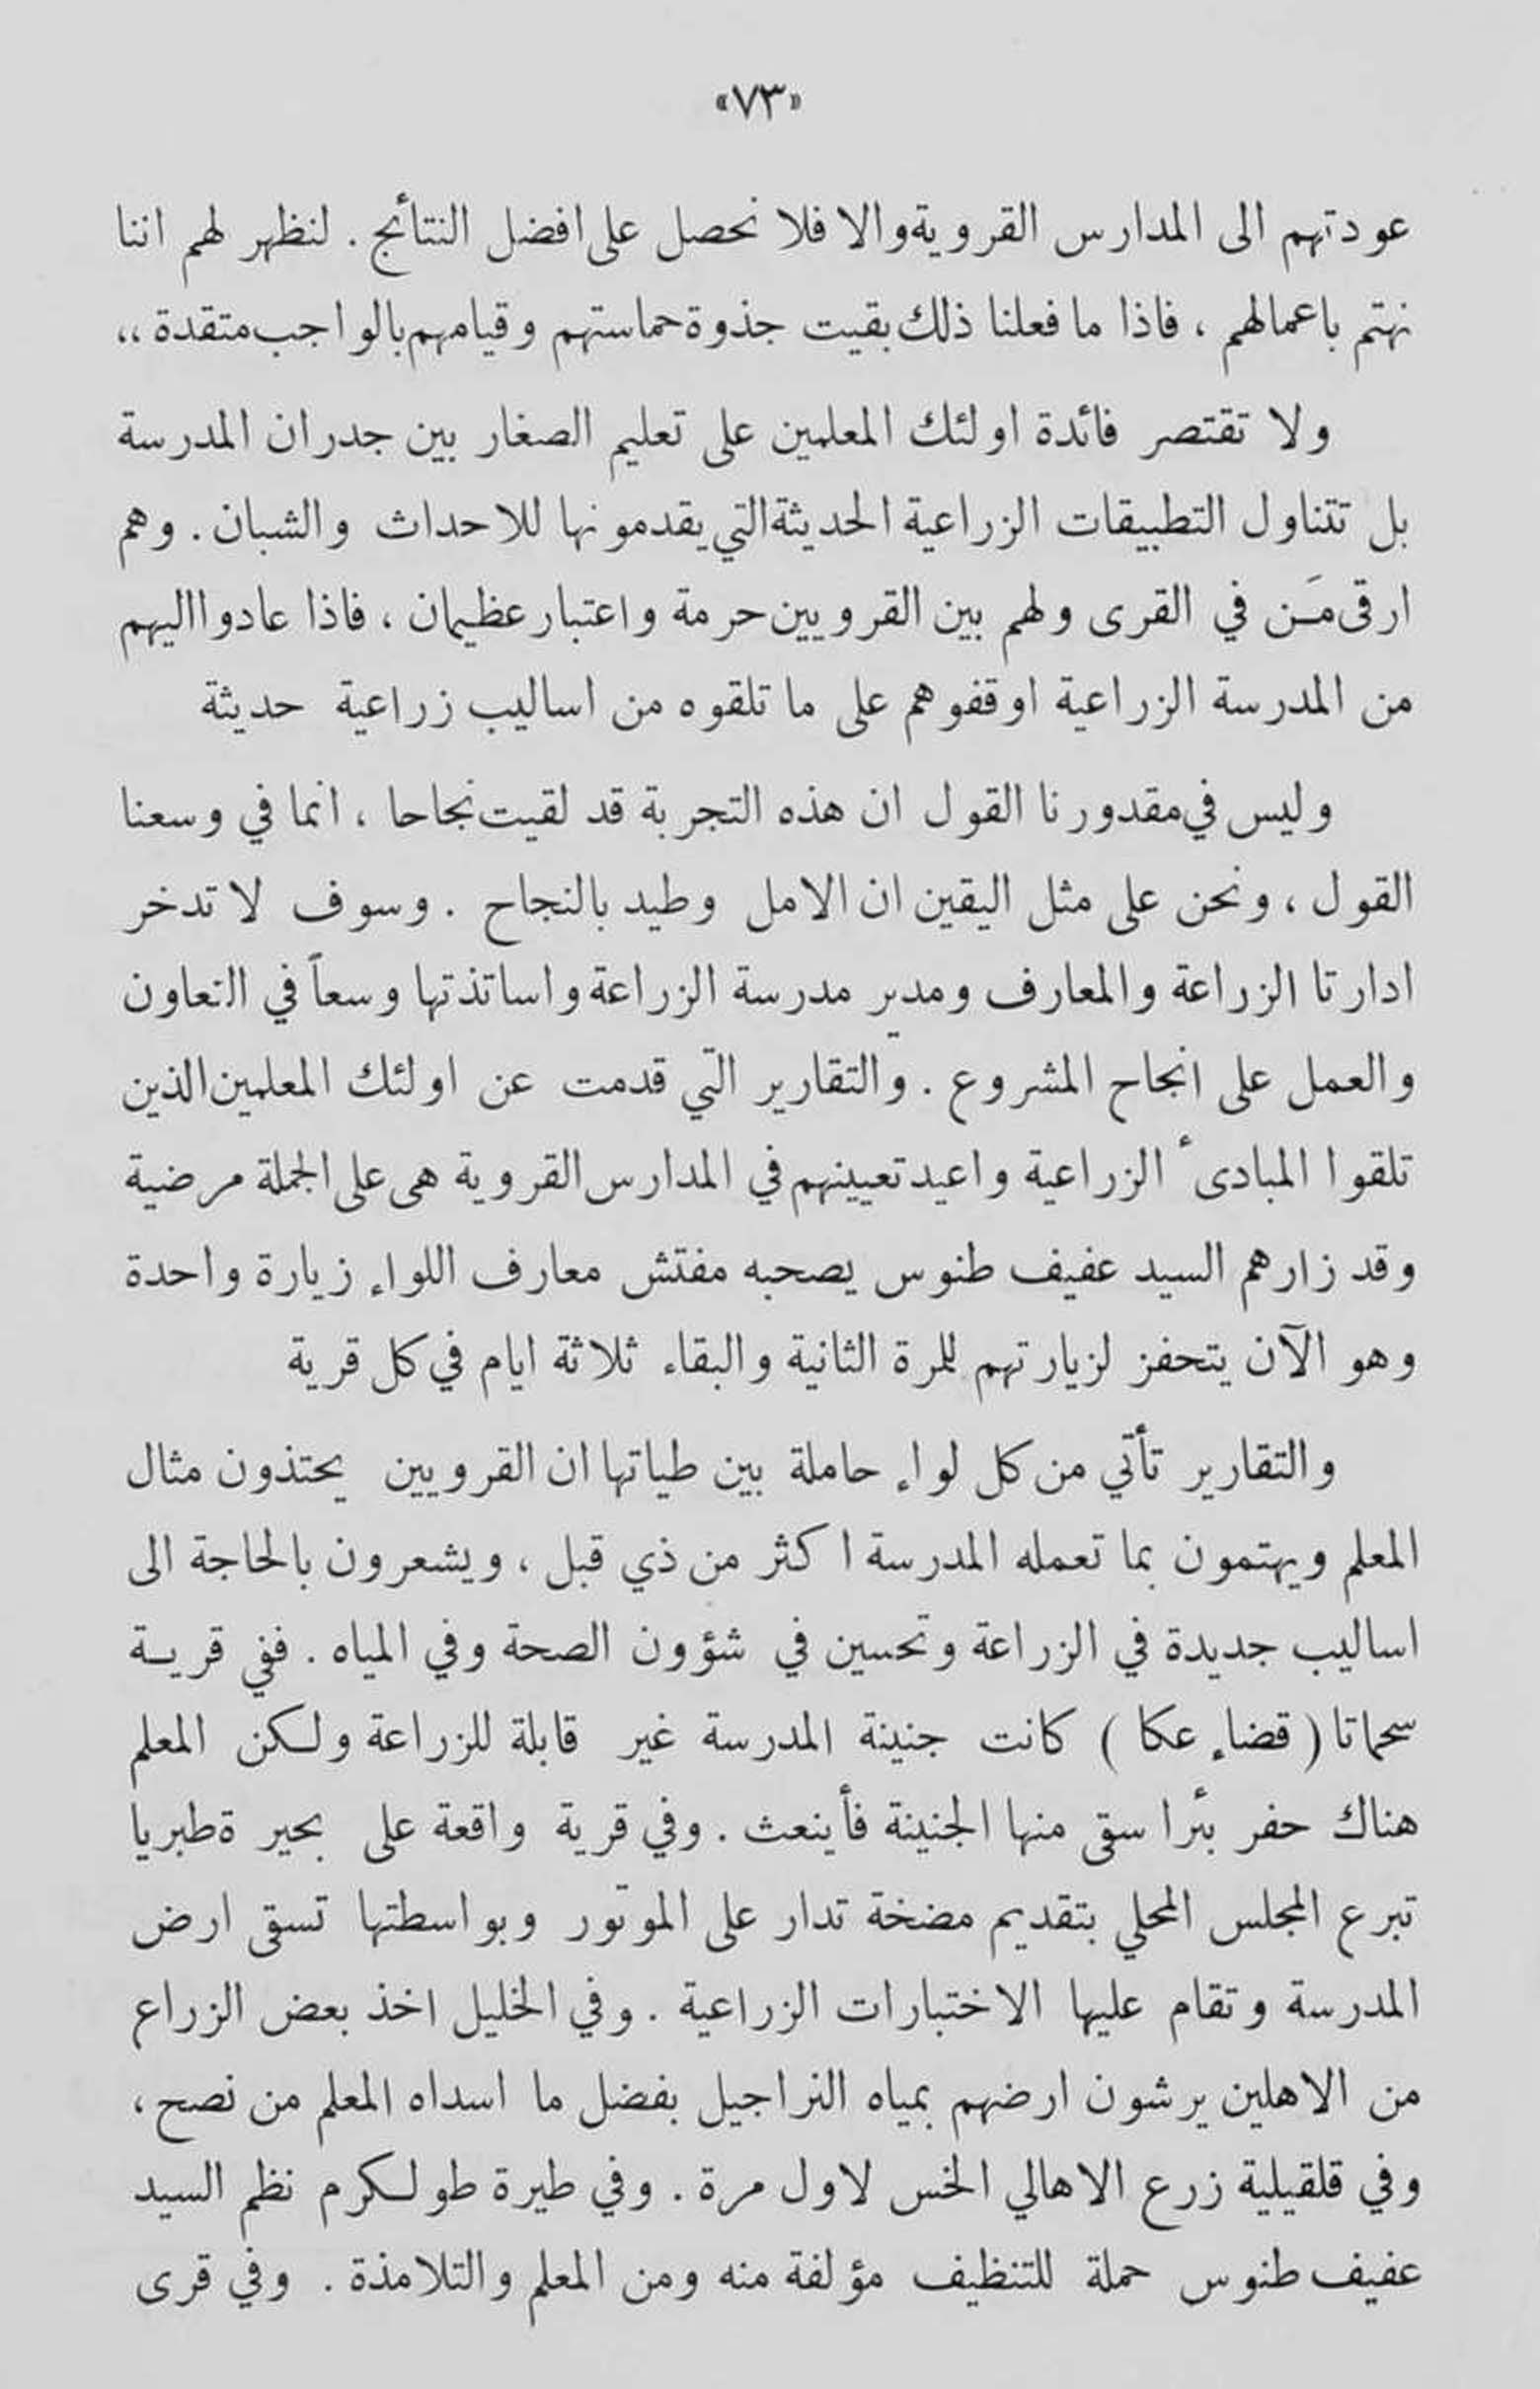 «٧٣»
عودتهم الى المدارس القروية والا فلا نحصل على افضل النتائج . لنظهر لهم اننا
نهتم باعمالهم ، فاذا ما فعلنا ذلك بقيت جذوة حماستهم وقيامهم بالواجب متقدة ،،
ولا تقتصر فائدة اولئك المعلمين على تعليم الصغار بين جدران المدرسة
بل تتناول التطبيقات الزراعية الحديثة التي يقدمونها للاحداث والشبان . وهم
ارقى مَن في القرى ولهم بين القرويين حرمة واعتبار عظيمان ، فاذا عادوا اليهم
من المدرسة الزراعية اوقفوهم على ما تلقوه من اساليب زراعية حديثة
وليس في مقدورنا القول ان هذه التجربة قد لقيت نجاحا ، انما في وسعنا
القول ، ونحن على مثل اليقين ان الامل وطيد بالنجاح . وسوف لا تدخر
ادارتا الزراعة والمعارف ومدير مدرسة الزراعة واساتذتها وسعاً في التعاون
والعمل على انجاح المشروع . والتقارير التي قدمت عن اولئك المعلمين الذين
تلقوا المبادىٔ الزراعية واعيد تعيينهم في المدارس القروية هى على الجملة مرضية
وقد زارهم السيد عفيف طنوس يصحبه مفتش معارف اللواء زيارة واحدة
وهو الآن يتحفز لزيارتهم للمرة الثانية والبقاء ثلاثة ايام في كل قرية
والتقارير تأتي من كل لواء حاملة بين طياتها ان القرويين يحتذون مثال
المعلم ويهتمون بما تعمله المدرسة اكثر من ذي قبل ، ويشعرون بالحاجة الى
اساليب جديدة في الزراعة وتحسين في شؤون الصحة وفي المياه . ففي قريـة
سحماتا ( قضاء عكا ) كانت جنينة المدرسة غير قابلة للزراعة ولـكن المعلم
هناك حفر بئرا سقى منها الجنينة فأينعث . وفي قرية واقعة على بحيرة طبريا
تبرع المجلس المحلي بتقديم مضخة تدار على الموتور وبواسطتها تسقى ارض
المدرسة وتقام عليها الاختبارات الزراعية . وفي الخليل اخذ بعض الزراع
من الاهلين يرشون ارضهم بمياه النراجيل بفضل ما اسداه المعلم من نصح ،
وفي قلقيلية زرع الاهالي الخس لاول مرة . وفي طيرة طولـكرم نظم السيد
عفيف طنوس حملة للتنظيف مؤلفة منه ومن المعلم والتلامذة . وفي قرى